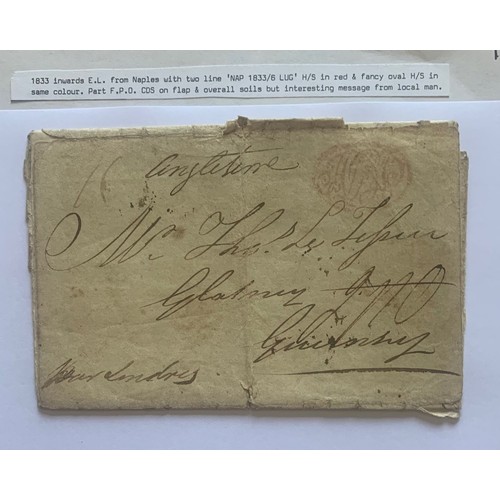 1833 inwards E.L. from Naples with two line 'NAP 1833/6 LUG' H/S in red & fancy oval H/S in
same colour. Part F.P.O. CDS on flap & overall soils but interesting message from local man.
Angleterre
Mr. Thos. Le
Glatney
Guernsey
par Londres